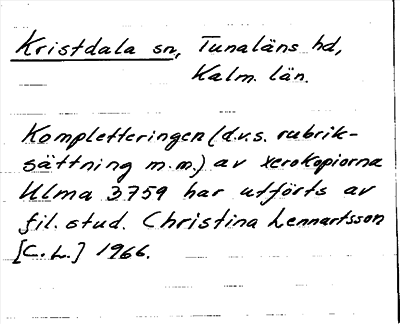 Kristdala sn, Tunaläns hd,
Kalm. län.
Kompletteringen (d.v.s. rubrik-
sättning m.m.) av xerokopiorna
Ulma 3759 har utförts av
fil. stud. Christina Lennartsson
[C. L.] 1966.